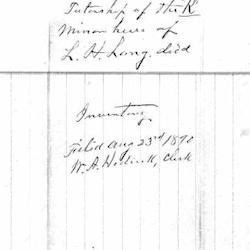 Tutorship of the
Minor heirs of
L. H. Long. died
Inventory
Filed Aug 23rd 1890
W. A. Clerk